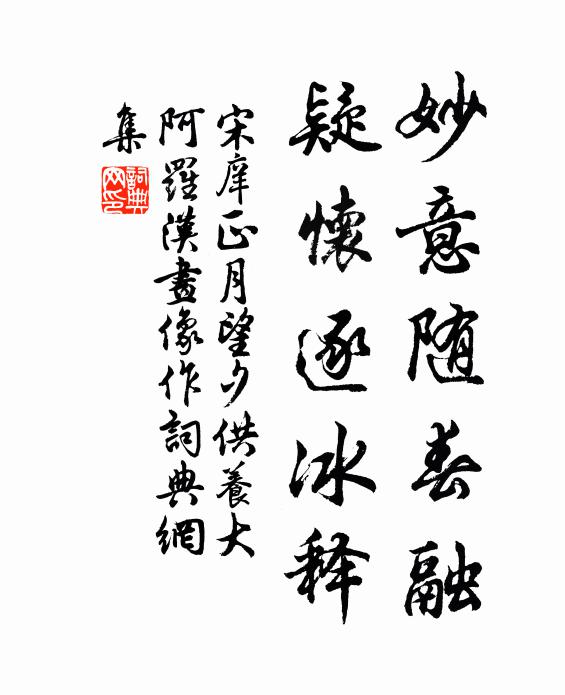 妙意随春融
疑懷逐冰释
宋庠正月望夕供養大
阿羅漢畫像作詞典網
集
詞典網印